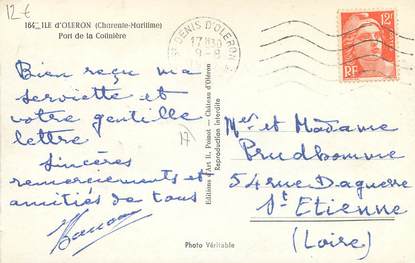 12€
164 ILE d'OLERON (Charente-Maritime)
Port de la Cotinière
Bien reçu ma
serviette et
votre gentille
lettre
Sincères
remerciements et
amitiés de tous
17
Editions d'Art R. Château d'Oléron
Reproduction interdite
Photo Véritable
St DENIS D'OLERON
17H30
12F
RF
Mr et Madame
Prudhomme
54 rue Daguerre
St Etienne
(Loire)